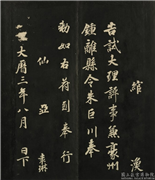 告試大理評事兼豪州
鍾離縣令朱巨川奉
勅如右符到奉行
仙 亞 袁琳
大曆三年八月 日下